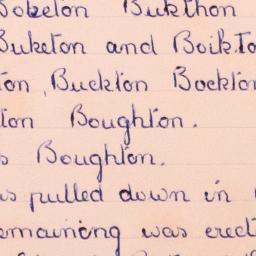 Bobeton Bukthon
Buketon and Boik.To
ton, Buckton Bockton
ton Boughton.
s Boughton.
as pulled down in
emaining was erect